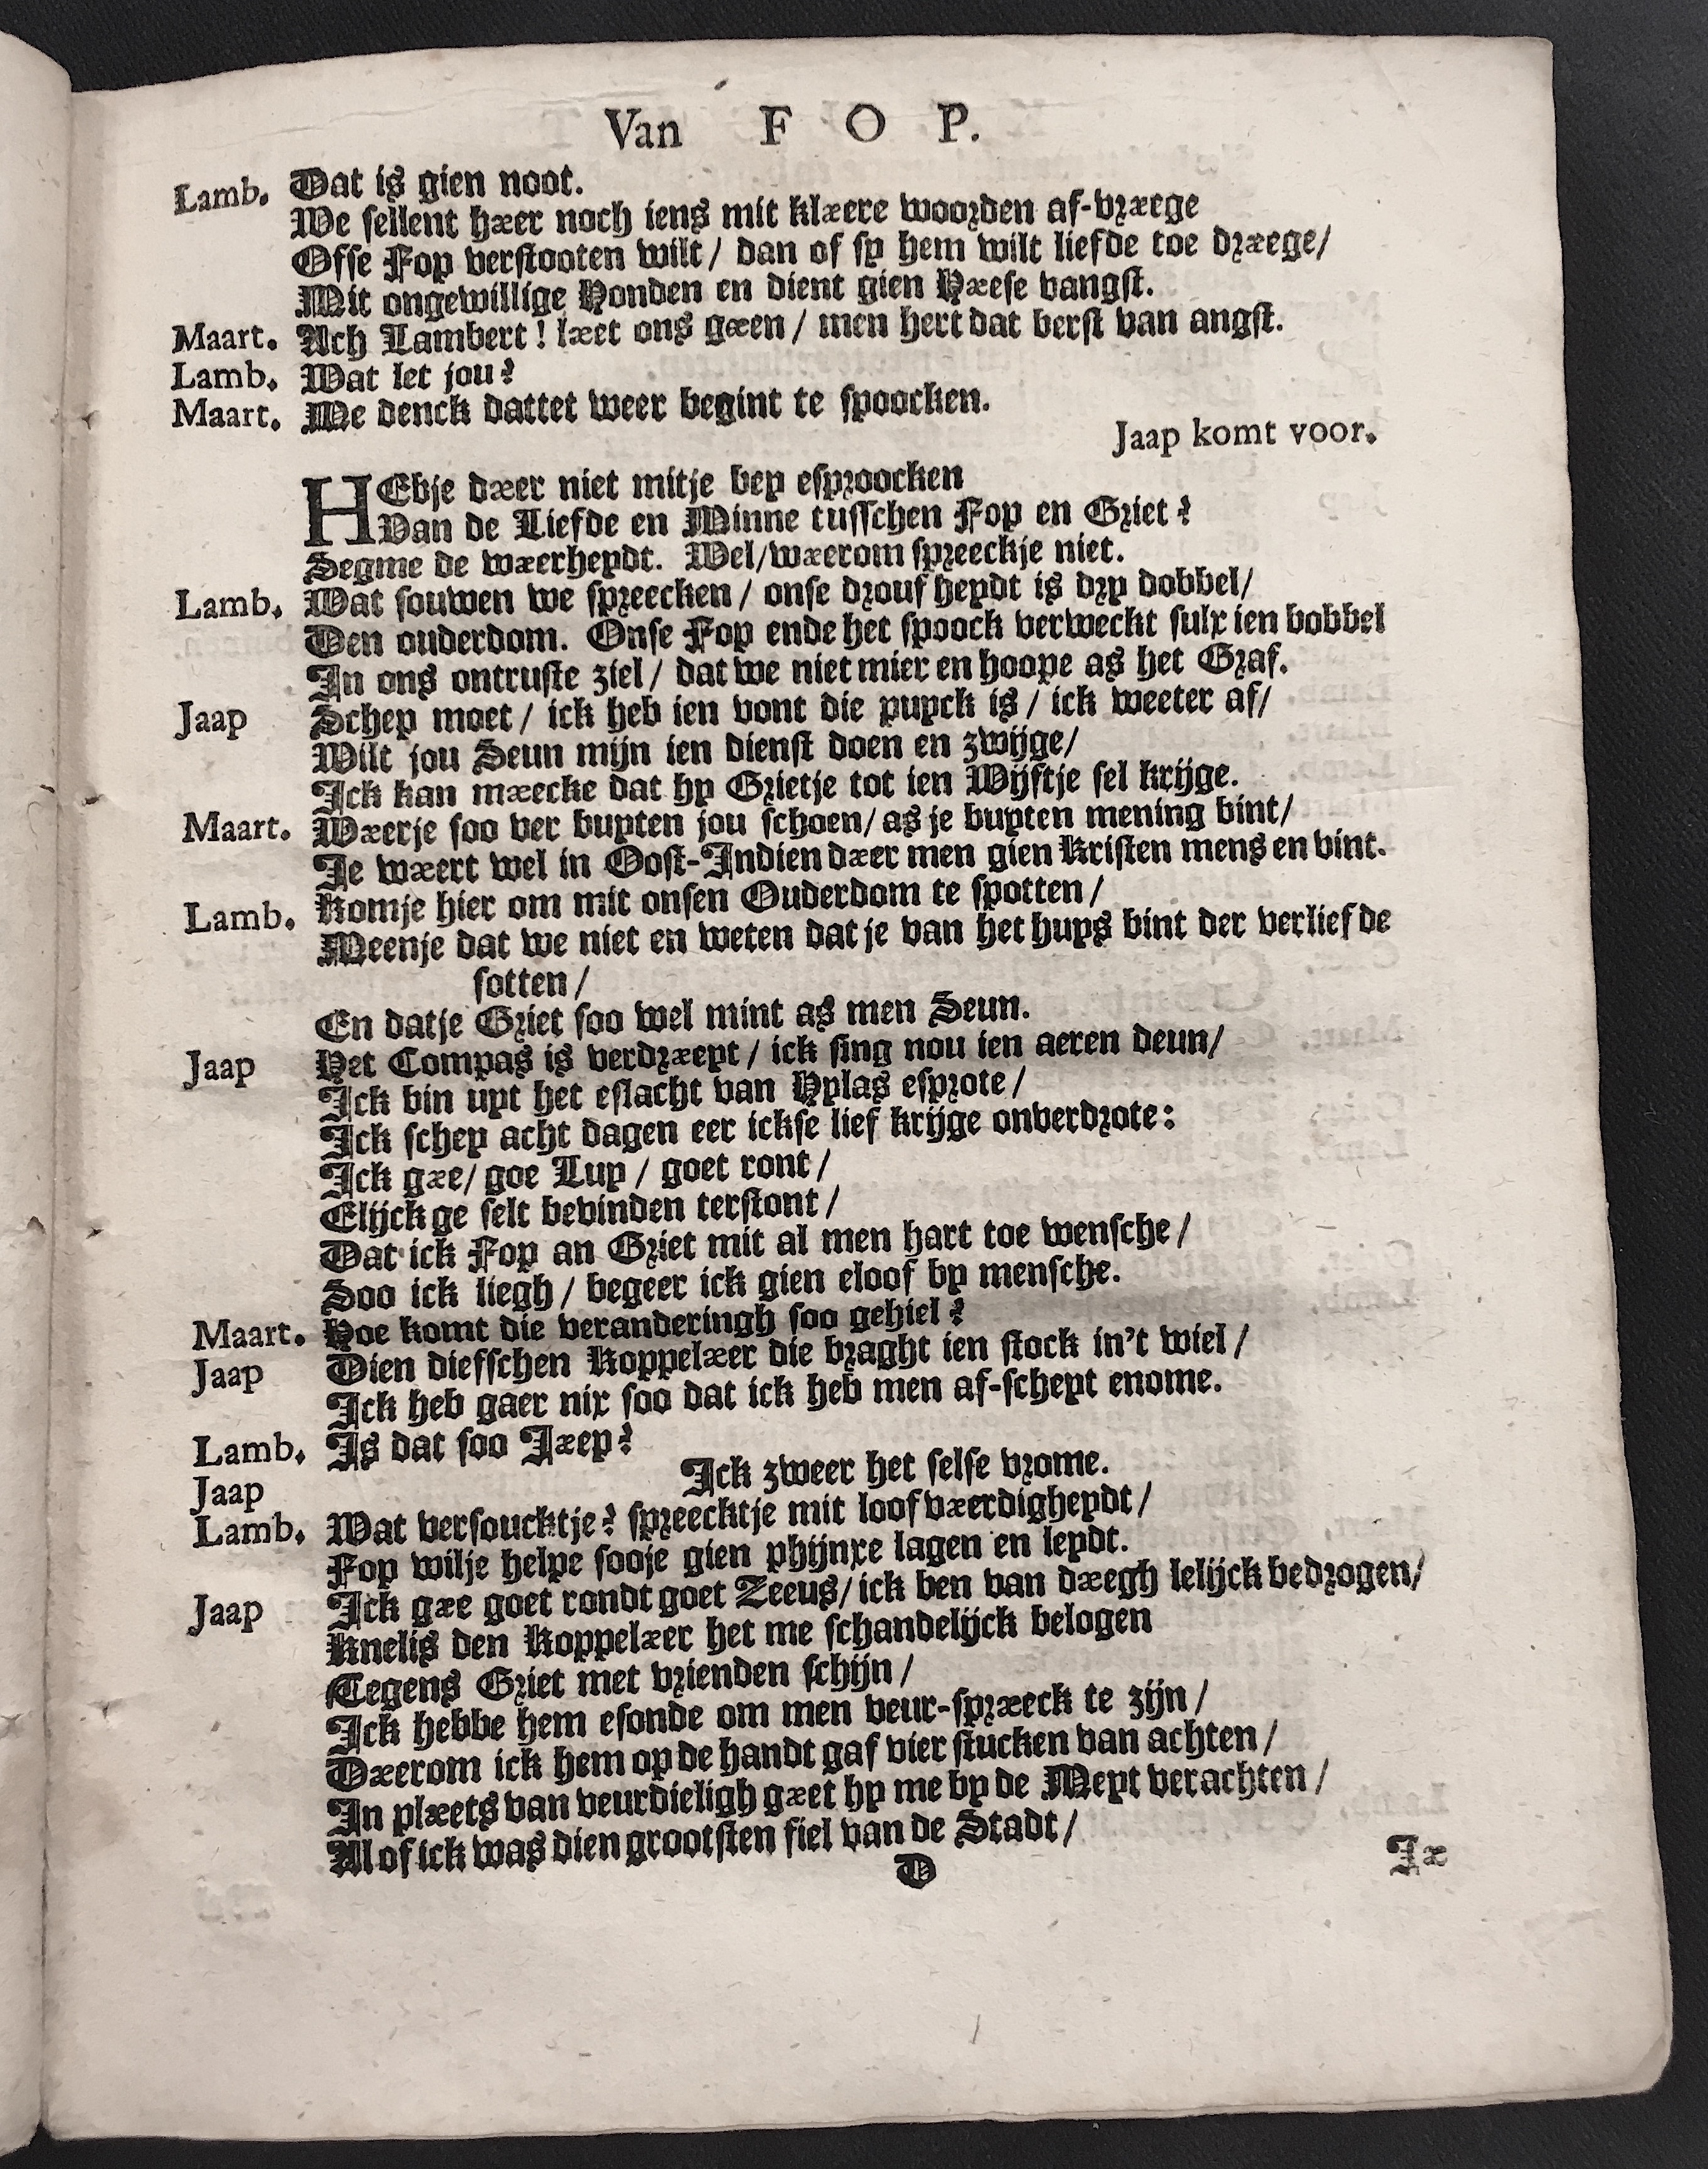 Van F O P.
Lamb. Dat is gien noot.
We sellent hær noch iens mit klære woorden af-vræge
Ofse Fop verstooten wilt / dan of sy hem wilt liefde toe dræge /
Mit ongewillige Honden en dient gien Hæse vangst.
Maart. Ach Lambert ! læt ons gæn / men hert dat berst van angst.
Lamb. Wat let jou ?
Maart. Me denck dattet weer begint te spoocken.
Jaap komt voor.
HEbje dær niet mitje bey esproocken
Van de Liefde en Minne tusschen Fop en Griet ?
Segme de wærheydt. Wel / wærom spreeckje niet.
Lamb. Wat souwen we spreecken / onse droufheydt is dry dobbel /
Den ouderdom. Onse Fop ende het spoock verweckt sulx ien bobbel
In ons ontruste ziel / dat we niet mier en hoope as het Graf.
Jaap Schep moet / ick heb ien vont die puyck is / ick weeter af /
Wilt jou Seun mijn ien dienst doen en zwijge /
Ick kan mæcke dat hy Grietje tot ien Wijftje sel krijge.
Maart. Wærje soo ver buyten jou schoen / as je buyten mening bint /
Je wært wel in Oost-Indien dær men gien Kristen mens en vint.
Lamb. Komje hier om mit onsen Ouderdom te spotten /
Meenje dat we niet en weten dat je van het huys bint der verliefde
sotten /
En datje Griet soo wel mint as men Seun.
Jaap Het Compas is verdræyt / ick sing nou ien aeren deun /
Ick bin uyt het eslacht van Hylas esprote /
Ick schey acht dagen eer ickse lief krijge onverdrote :
Ick gæ / goe Luy / goet ront /
Elijck ge selt bevinden terstont /
Dat ick Fop an Griet mit al men hart toe wensche /
Soo ick liegh / begeer ick gien eloof by mensche.
Maart. Hoe komt die veranderingh soo gehiel ?
Jaap Dien diefschen Koppelær die braght ien stock in't wiel /
Ick heb gaer nix soo dat ick heb men af-scheyt enome.
Lamb. Is dat soo Jæp ?
Jaap Ick zweer het selfe vrome.
Lamb. Wat versoucktje ? spreecktje mit loofværdigheydt /
Fop wilje helpe sooje gien phijnxe lagen en leydt.
Jaap Ick gæ goet rondt goet Zeeus / ick ben van dægh lelijck bedrogen /
Knelis den Koppelær het me schandelijck belogen
Tegens Griet met vrienden schijn /
Ick hebbe hem esonde om men veur-spræck te zijn /
Dærom ick hem op de handt gaf vier stucken van achten /
In plæts van veurdieligh gæt hy me by de Meyt verachten /
Al of ick was dien grootsten fiel van de Stadt /
D
Jæ